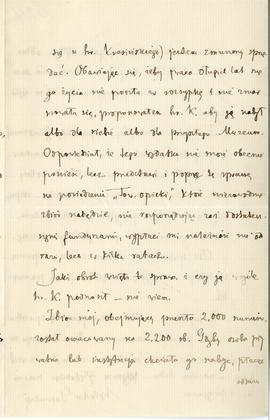 się u hr. Krasińskiego) jestem zmuszony sprze-
dać. Obawiając się, żeby praca długich lat me-
go życia nie poszła w rozsypkę i nie zmar-
nowała się, proponowałem hr. K. aby ją nabył
albo dla siebie albo dla przyszłego Muzeum.
Odpowiedział, że tego wydatku nie może obecnie
ponieść, lecz przedstawi i poprze tę sprawę
na posiedzeniu „Tow. opieki", które niezawodnie
zbiór nabędzie, nie rozporządzając zaś dostatecz-
nymi funduszami, wypłaci mi należność nie od-
razu, lecz w kilku ratach.
Jaki obrót wzięła ta sprawa i czy ją
hr. K. podnosił — nie wiem.
Zbiór mój, obejmujący przeszło 2,000 numerów,
został oszacowany na 2,200 rb. Gdyby osoba pry-
watna lub instytucja chciała go nabyć, płacąc